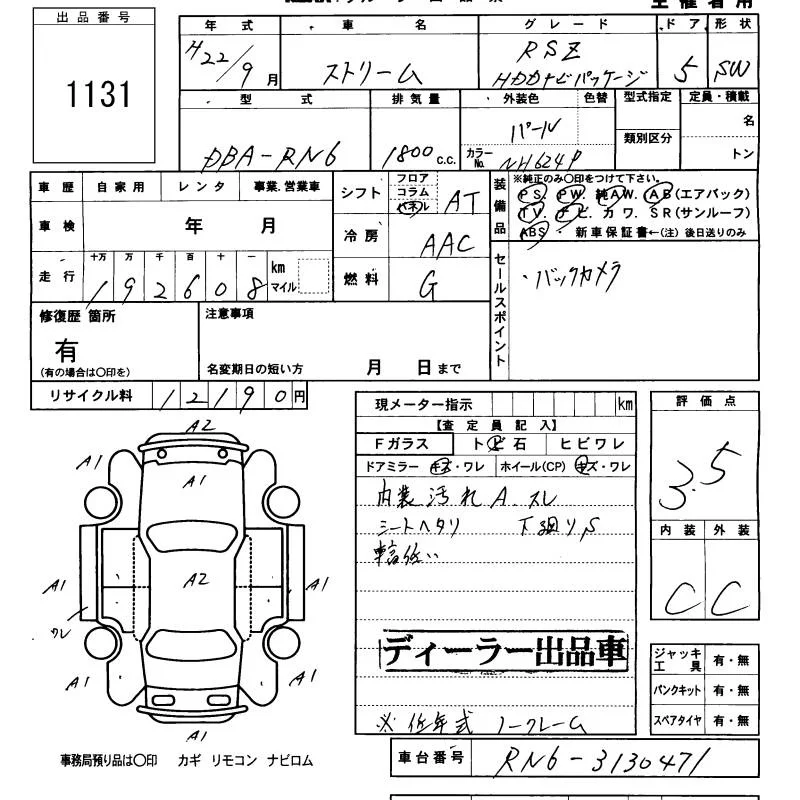 出品番号
1131
年式 車名 グレード ドア 形状
H22/9月 ストリーム RSZ 5 SW
HDDナビパッケージ
型式 排気量 外装色 色替 型式指定 定員・積載
DBA-RN6 1800c.c. パール 類別区分 名
カラーNo. NH624P トン
車歴 自家用 レンタ 事業.営業車
車検 年 月
走行 十万 万 千 百 十 一
192608 km マイル
シフト フロア コラム パネル AT
冷房 AAC
燃料 G
装備品 ※純正のみ〇印をつけて下さい。
PS. PW. 純AW. AB(エアバック)
TV. ナビ. カワ. SR(サンルーフ)
ABS ・ 新車保証書←(注) 後日送りのみ
セールスポイント
・バックカメラ
修復歴 箇所 注意事項
有
(有の場合は〇印を) 名変期日の短い方 月 日まで
リサイクル料 12190円
現メーター指示 km
【査定員記入】
Fガラス トビ石 ヒビワレ
ドアミラー キズ・ワレ ホイール(CP) キズ・ワレ
内装汚れ A.スレ
シートヘタリ 下廻りS
ディーラー出品車
※低年式 ノークレーム
評価点
3.5
内装 外装
C C
ジャッキ工具 有・無
パンクキット 有・無
スペアタイヤ 有・無
A2
A1
A1
A1
A1
A2
A1
ワレ
A1
A1
A1
事務局預り品は〇印 カギ リモコン ナビロム
車台番号 RN6-3130471